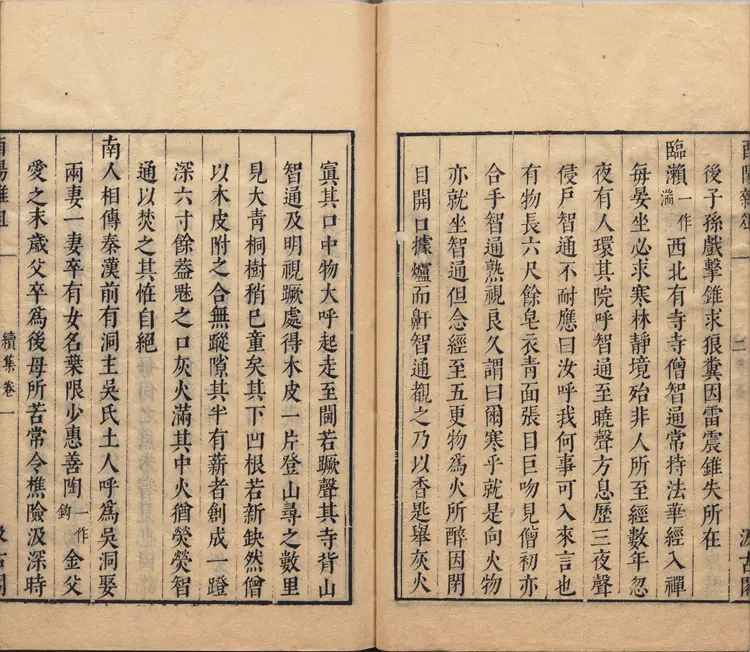 酉陽雜俎
二
汲古閣
後子孫戲擊錐求狼糞因雷震錐失所在
臨瀨一作湍西北有寺寺僧智通常持法華經入禪
每晏坐必求寒林靜境殆非人所至經數年忽
夜有人環其院呼智通至曉聲方息歷三夜聲
侵戸智通不耐應曰汝呼我何事可入來言也
有物長六尺餘皂衣青面張目巨吻見僧初亦
合手智通熟視良久謂曰爾寒乎就是向火物
亦就坐智通但念經至五更物爲火所醉因閉
目開口據爐而鼾智通觀之乃以香匙舉灰火
寘其口中物大呼起走至閫若蹶聲其寺背山
智通及明視蹶處得木皮一片登山尋之數里
見大青桐樹稍已童矣其下凹根若新缺然僧
以木皮附之合無蹤隙其半有薪者創成一蹬
深六寸餘蓋魅之口灰火滿其中火猶熒熒智
通以焚之其恠自絕
南人相傳秦漢前有洞主吳氏土人呼爲吳洞娶
兩妻一妻卒有女名葉限少惠善陶一作鈞金父
愛之末歲父卒爲後母所苦常令樵險汲深時
酉陽雜俎
續集卷一
汲古閣